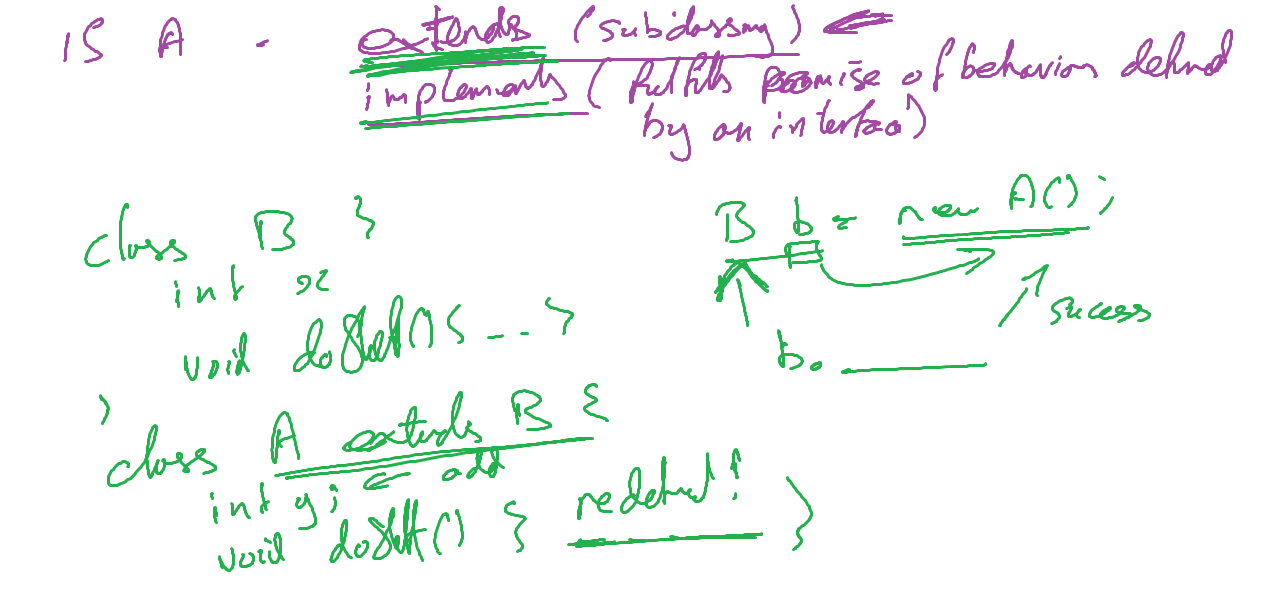 IS A - extends (subclassing)
implements (fulfills promise of behavior defined
by an interface)
class B }
int x
void doStuff() { ... }
}
class A extends B {
int y; ← add
void doStuff() { redefined! }
B b = new A();
success
b.